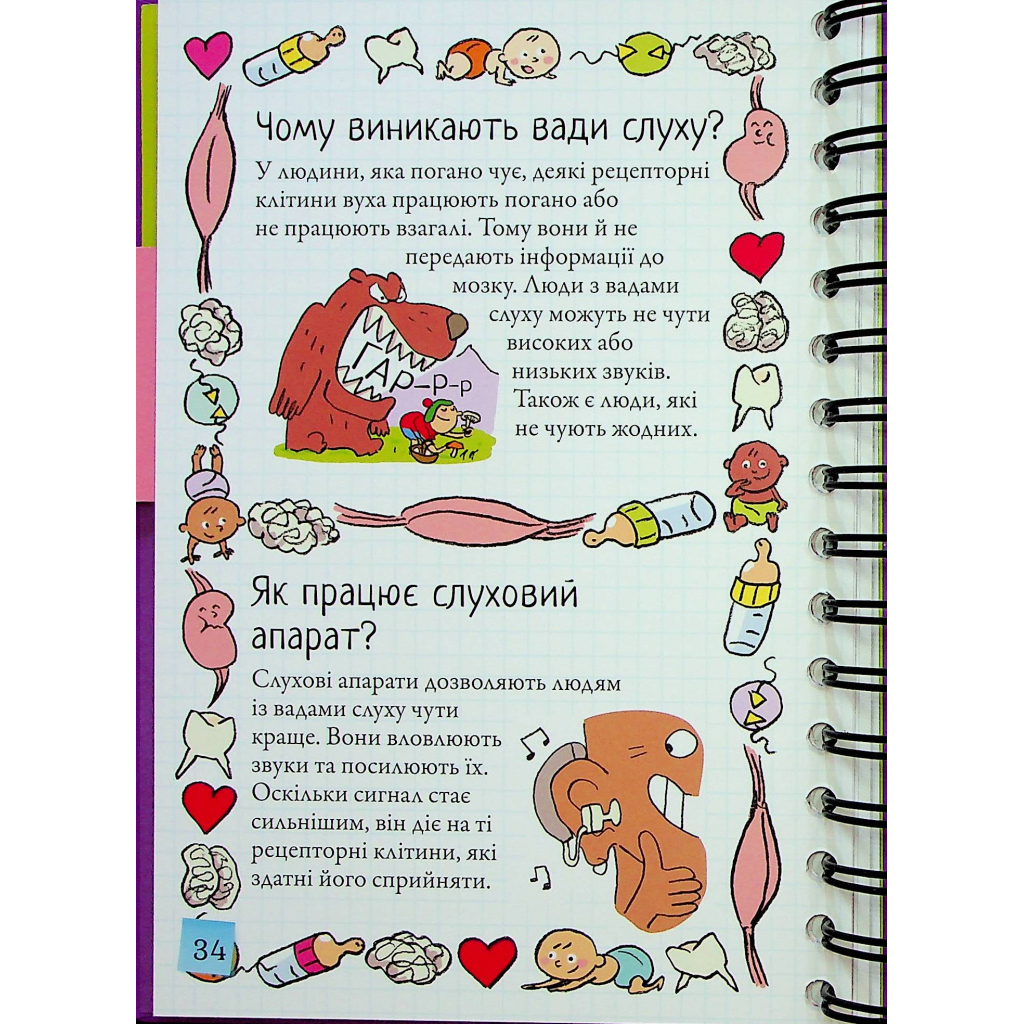 Чому виникають вади слуху?
У людини, яка погано чує, деякі рецепторні
клітини вуха працюють погано або
не працюють взагалі. Тому вони й не
передають інформації до
мозку. Люди з вадами
слуху можуть не чути
високих або
низьких звуків.
Також є люди, які
не чують жодних.
ГАР-р-р
Як працює слуховий
апарат?
Слухові апарати дозволяють людям
із вадами слуху чути
краще. Вони вловлюють
звуки та посилюють їх.
Оскільки сигнал стає
сильнішим, він діє на ті
рецепторні клітини, які
здатні його сприйняти.
34